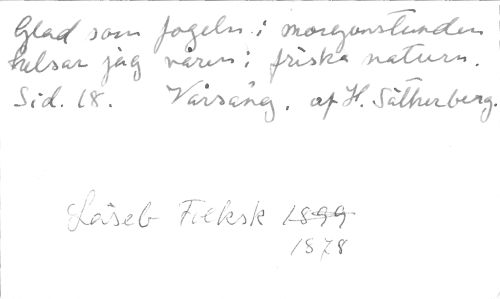 Glad som fogeln i morgonstunden
helsar jag våren i friska naturn.
Sid. 18. Vårsång, af H. Sätherberg.
Läseb Folksk 1899
1878